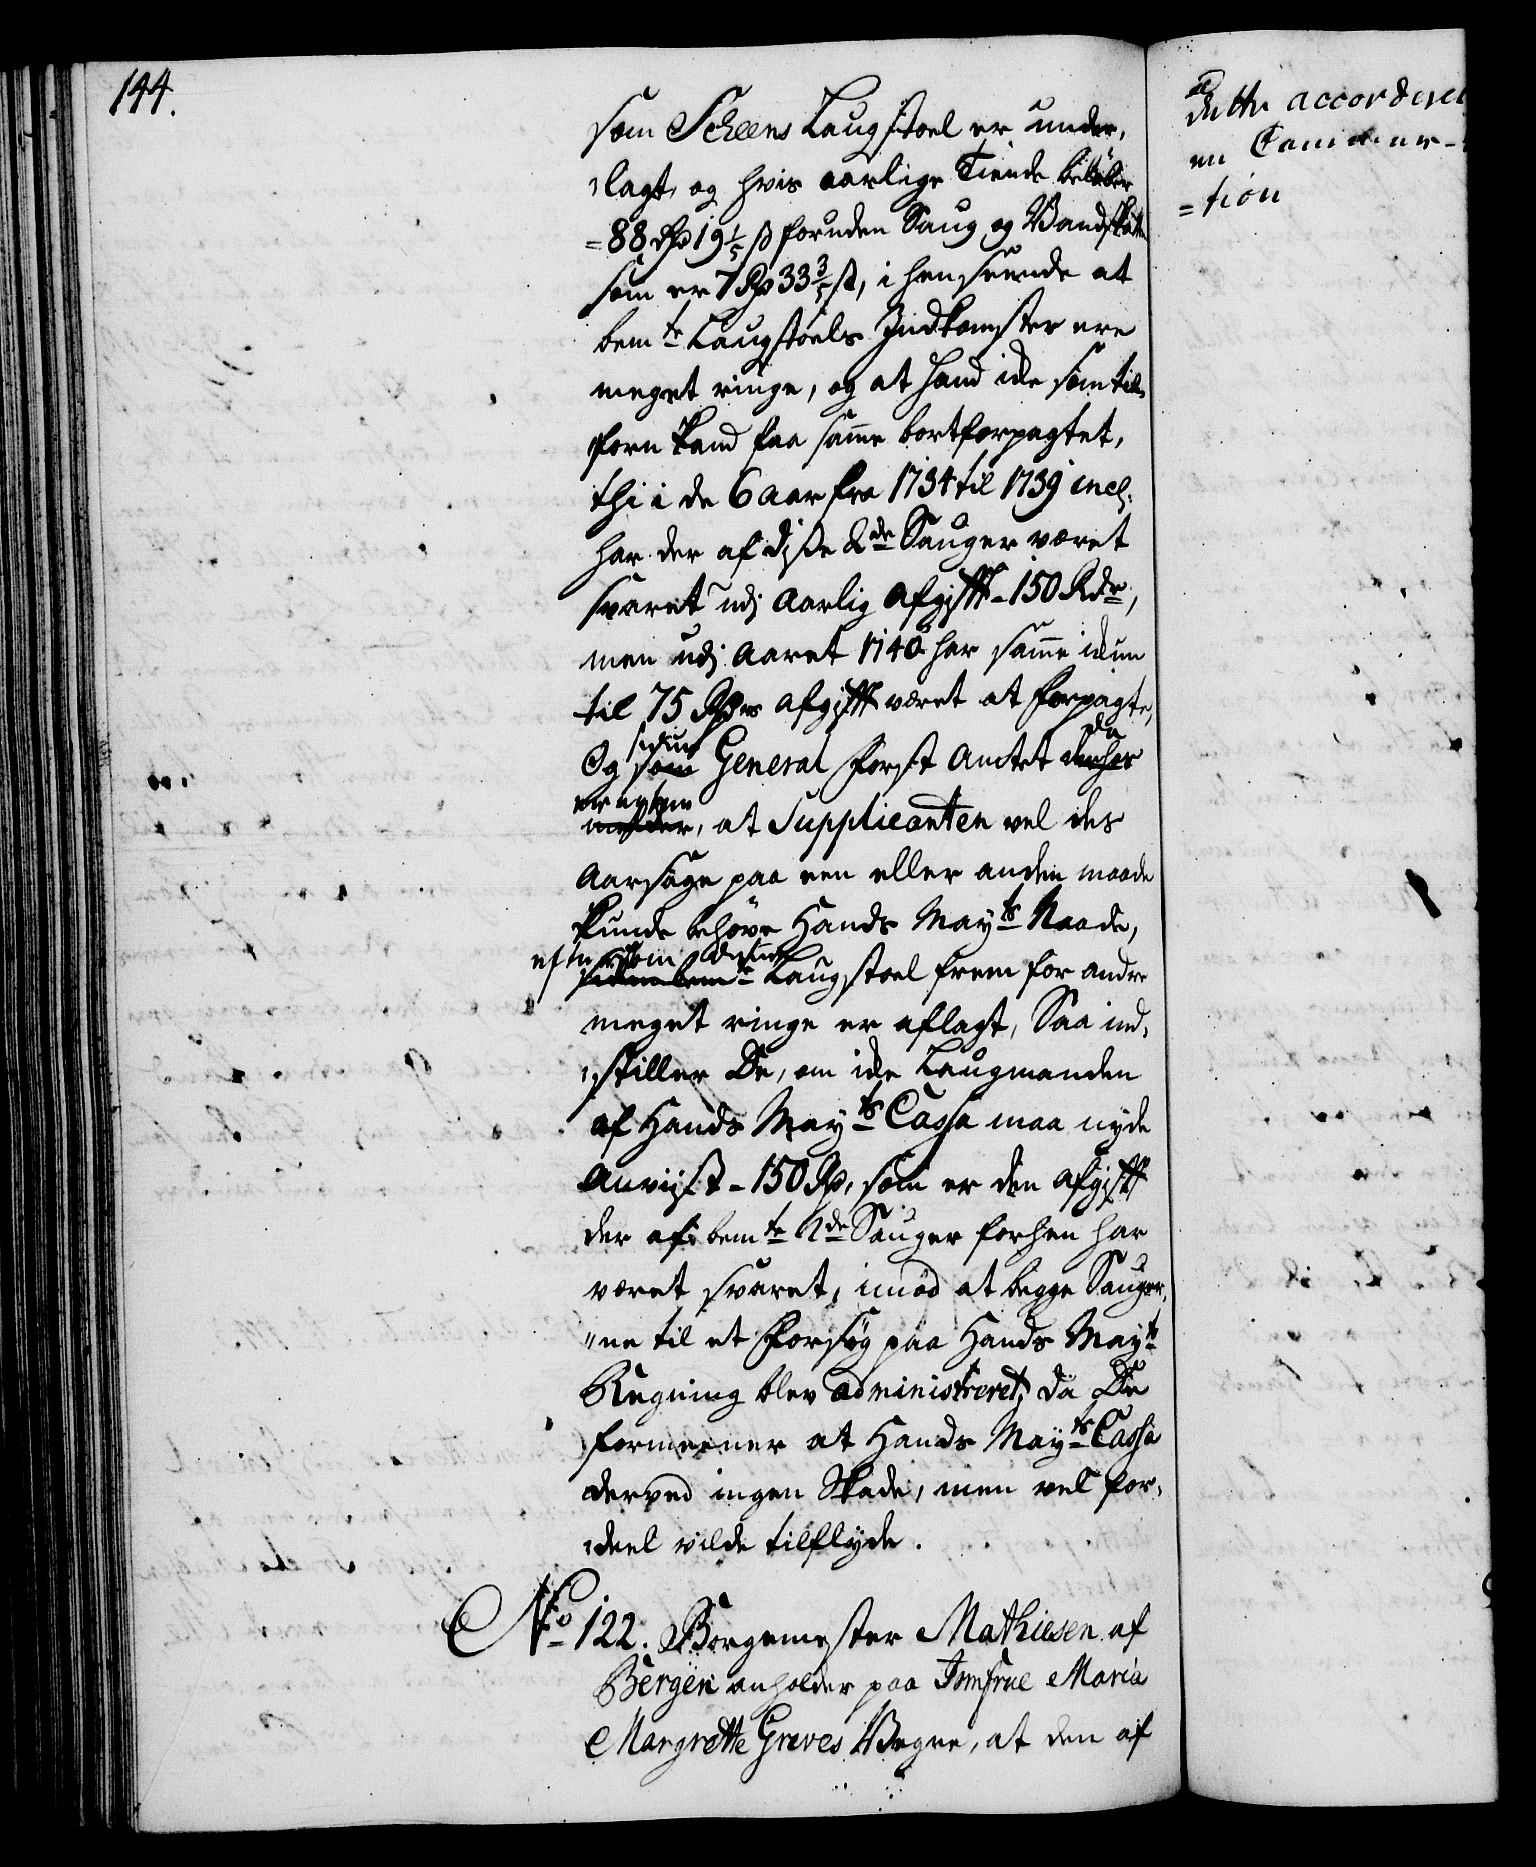 144.
som Scheens Laugstoel er under,
lagt, og hvis aarlige Tiende beløber
=88 Rdr 19 1/5 ß foruden Saug og Bandskatten
som er 7 Rdr 33 3/5 ß, i henseende at
bemte Laugstoels Indkomster ere
meget ringe, og at hand icke som til,
forn kand faa samme bortforpagtet,
thi i de 6 aar fra 1734 til 1739 incl:
har der af disse 2de Sauger været
svaret udj aarlig afgifft - 150 Rdr,
men udj Aaret 1740 har samme ickun
til 75 Rdrs afgifft været at forpagte,
da
siden
Og som General Forst Amtet derhos
eragter
melder, at Supplicanten vel des
Aarsage paa een eller anden maade
kunde behøve Hands Mayts Naade,
efftersom dessen
siden bemte Laugstoel frem for andre
meget ringe er aflagt, Saa ind,
stiller De, om icke Laugmanden
af Hands Mayts Cassa maa nyde
Anviist - 150 Rdr, som er den afgifft
der af bemte 2de Sauger forhen har
været svaret, imod at begge Sauger,
"ne til et Forsøg paa Hands Mayts
Regning blev administreret, da De
formeener at Hands Mayts Cassa
derved ingen Skade, men vel for,
deel vilde tilflyde.
No 122. Borgemester Mathiesen af
Bergen anholder paa Jomfrue Maria
Margrette Greves Vegne, at den af
dette accorderet
en
=tion